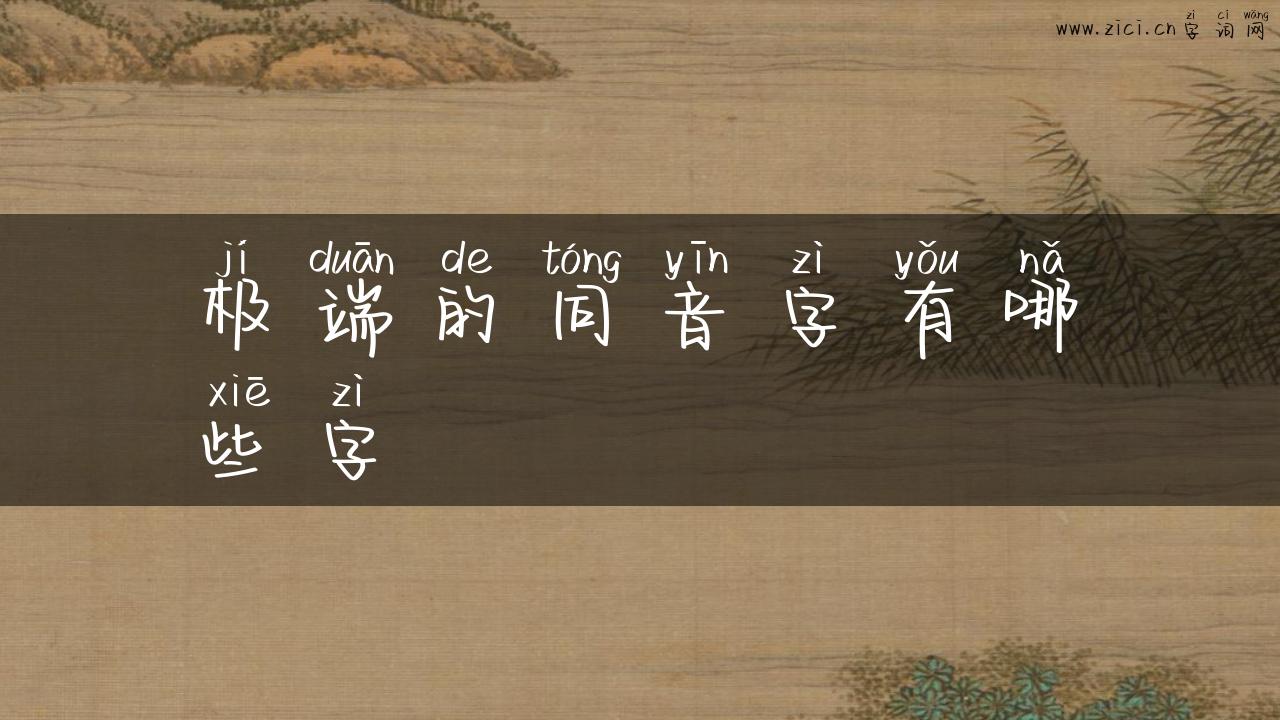 zì cí wǎng
www.zici.cn 字 词 网
jí duān de tóng yīn zì yǒu nǎ
极 端 的 同 音 字 有 哪
xiē zì
些 字